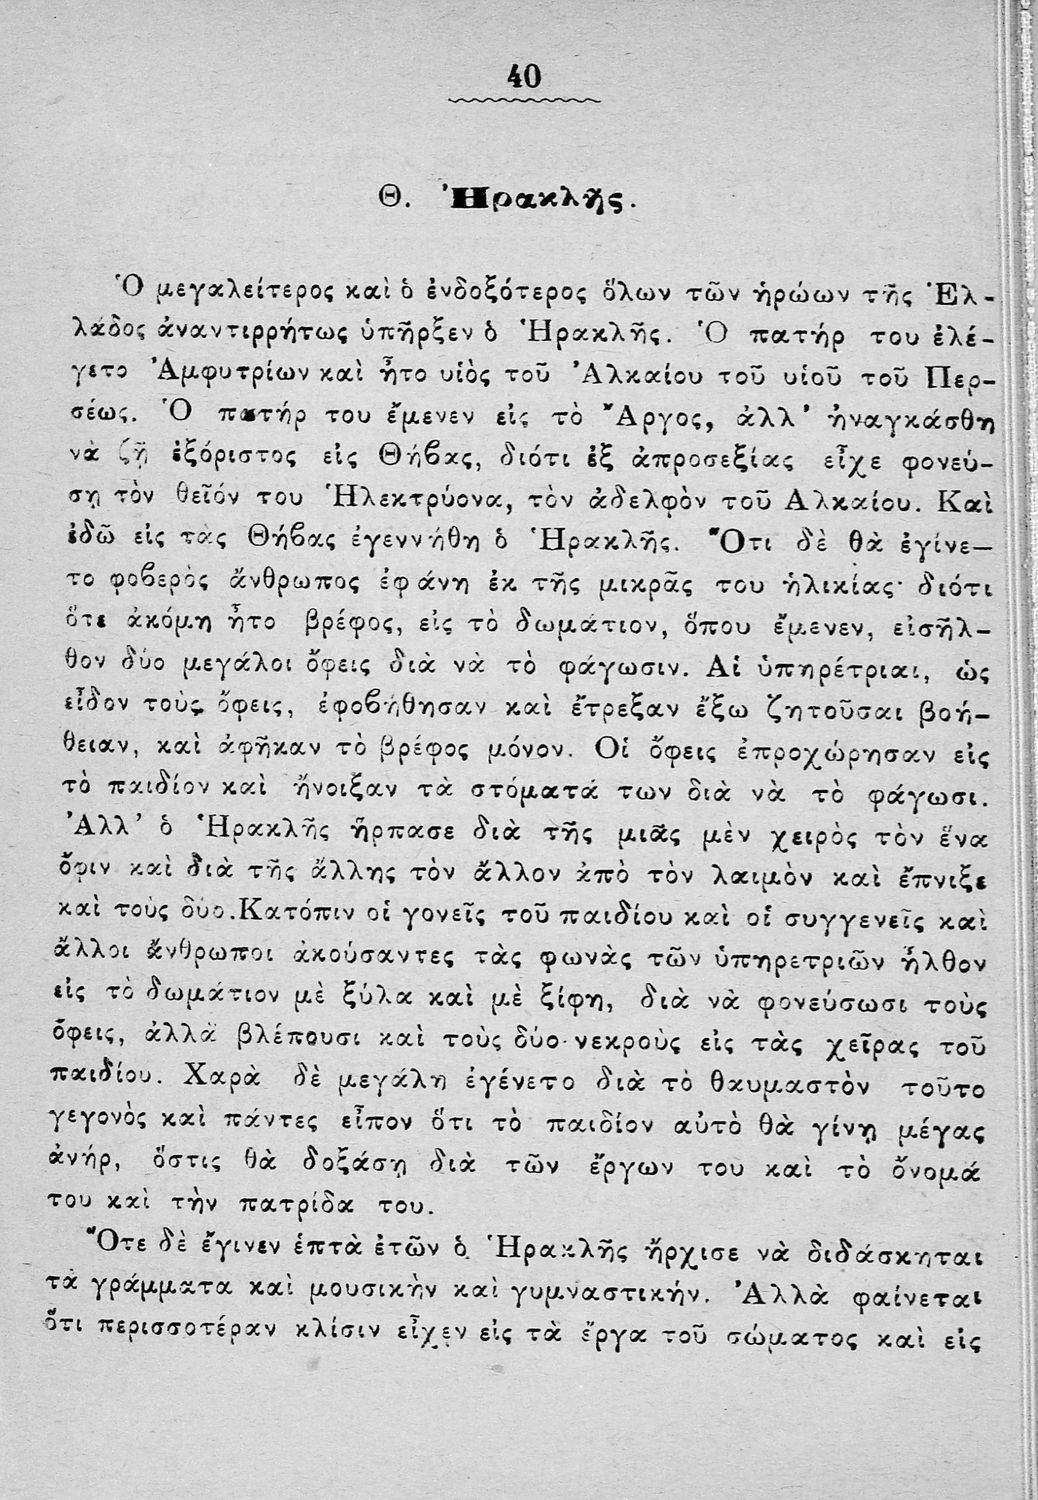 40
Θ. Ἡρακλῆς.
Ὁ μεγαλείτερος καὶ ὁ ἐνδοξότερος ὅλων τῶν ἡρώων τῆς Ἑλ-
λάδος ἀναντιρρήτως ὑπῆρξεν ὁ Ἡρακλῆς. Ὁ πατήρ του ἐλέ-
γετο Ἀμφυτρίων καὶ ἦτο υἱὸς τοῦ Ἀλκαίου τοῦ υἱοῦ τοῦ Περ-
σέως. Ὁ πατήρ του ἔμενεν εἰς τὸ Ἄργος, ἀλλ’ ἠναγκάσθη
νὰ ζῇ ἐξόριστος εἰς Θήβας, διότι ἐξ ἀπροσεξίας εἶχε φονεύ-
σῃ τὸν θεῖόν του Ἠλεκτρύονα, τὸν ἀδελφὸν τοῦ Αλκαίου. Καὶ
ἐδῶ εἰς τὰς Θήβας ἐγεννήθη ὁ Ἡρακλῆς. Ὅτι δὲ θὰ ἐγίνε—
το φοβερὸς ἄνθρωπος ἐφάνη ἐκ τῆς μικρᾶς του ἡλικίας· διότι
ὅτε ἀκόμη ἦτο βρέφος, εἰς τὸ δωμάτιον, ὅπου ἔμενεν, εἰσῆλ-
θον δύο μεγάλοι ὄφεις διὰ νὰ τὸ φάγωσιν. Αἱ ὑπηρέτριαι, ὡς
εἶδον τοὺς ὄφεις, ἐφοβήθησαν καὶ ἔτρεξαν ἔξω ζητοῦσαι βοή-
θειαν, καὶ ἀφῆκαν τὸ βρέφος μόνον. Οἱ ὄφεις ἐπροχώρησαν εἰς
τὸ παιδίον καὶ ἤνοιξαν τὰ στόματά των διὰ νὰ τὸ φάγωσι.
Ἀλλ’ ὁ Ἡρακλῆς ἥρπασε διὰ τῆς μιᾶς μὲν χειρὸς τὸν ἕνα
ὄφιν καὶ διὰ τῆς ἄλλης τὸν ἄλλον ἀπὸ τὸν λαιμὸν καὶ ἔπνιξε
καὶ τοὺς δύο. Κατόπιν οἱ γονεῖς τοῦ παιδίου καὶ οἱ συγγενεῖς καὶ
ἄλλοι ἄνθρωποι ἀκούσαντες τὰς φωνὰς τῶν ὑπηρετριῶν ἦλθον
εἰς τὸ δωμάτιον μὲ ξύλα καὶ μὲ ξίφη, διὰ νὰ φονεύσωσι τοὺς
ὄφεις, ἀλλὰ βλέπουσι καὶ τοὺς δύο νεκροὺς εἰς τὰς χεῖρας τοῦ
παιδίου. Χαρὰ δὲ μεγάλη ἐγένετο διὰ τὸ θαυμαστὸν τοῦτο
γεγονὸς καὶ πάντες εἶπον ὅτι τὸ παιδίον αὐτὸ θὰ γίνῃ μέγας
ἀνήρ, ὅστις θὰ δοξάσῃ διὰ τῶν ἔργων του καὶ τὸ ὄνομά
του καὶ τὴν πατρίδα του.
Ὅτε δὲ ἔγινεν ἑπτὰ ἐτῶν ὁ Ἡρακλῆς ἤρχισε νὰ διδάσκηται
τὰ γράμματα καὶ μουσικὴν καὶ γυμναστικήν. Ἀλλὰ φαίνεται
ὅτι περισσοτέραν κλίσιν εἶχεν εἰς τὰ ἔργα τοῦ σώματος καὶ εἰς